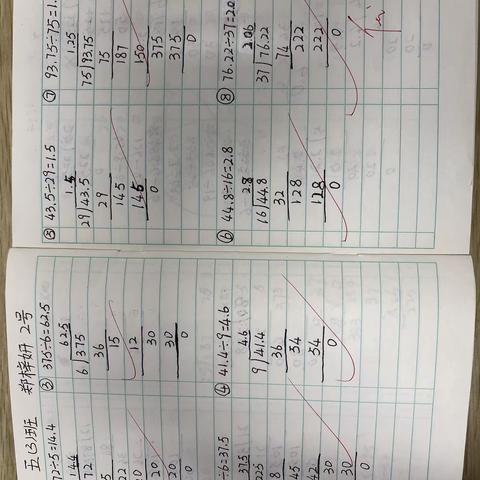 五(3)班 郑梓妍 2号
72÷5=14.4
1.44
7.2
5
22
20
20
0
÷6=37.5
37.5
225
8
45
42
30
30
0
③ 375÷6=62.5
62.5
6 375
36
15
12
30
30
0
④ 41.4÷9=4.6
4.6
9 41.4
36
54
54
0
⑤ 43.5÷29=1.5
1.5
29 43.5
29
145
145
0
⑥ 44.8÷16=2.8
2.8
16 44.8
32
128
128
0
⑦ 93.75÷75=1.
1.25
75 93.75
75
187
150
375
375
0
⑧ 76.22÷37=2.0
2.06
37 76.22
74
222
222
0